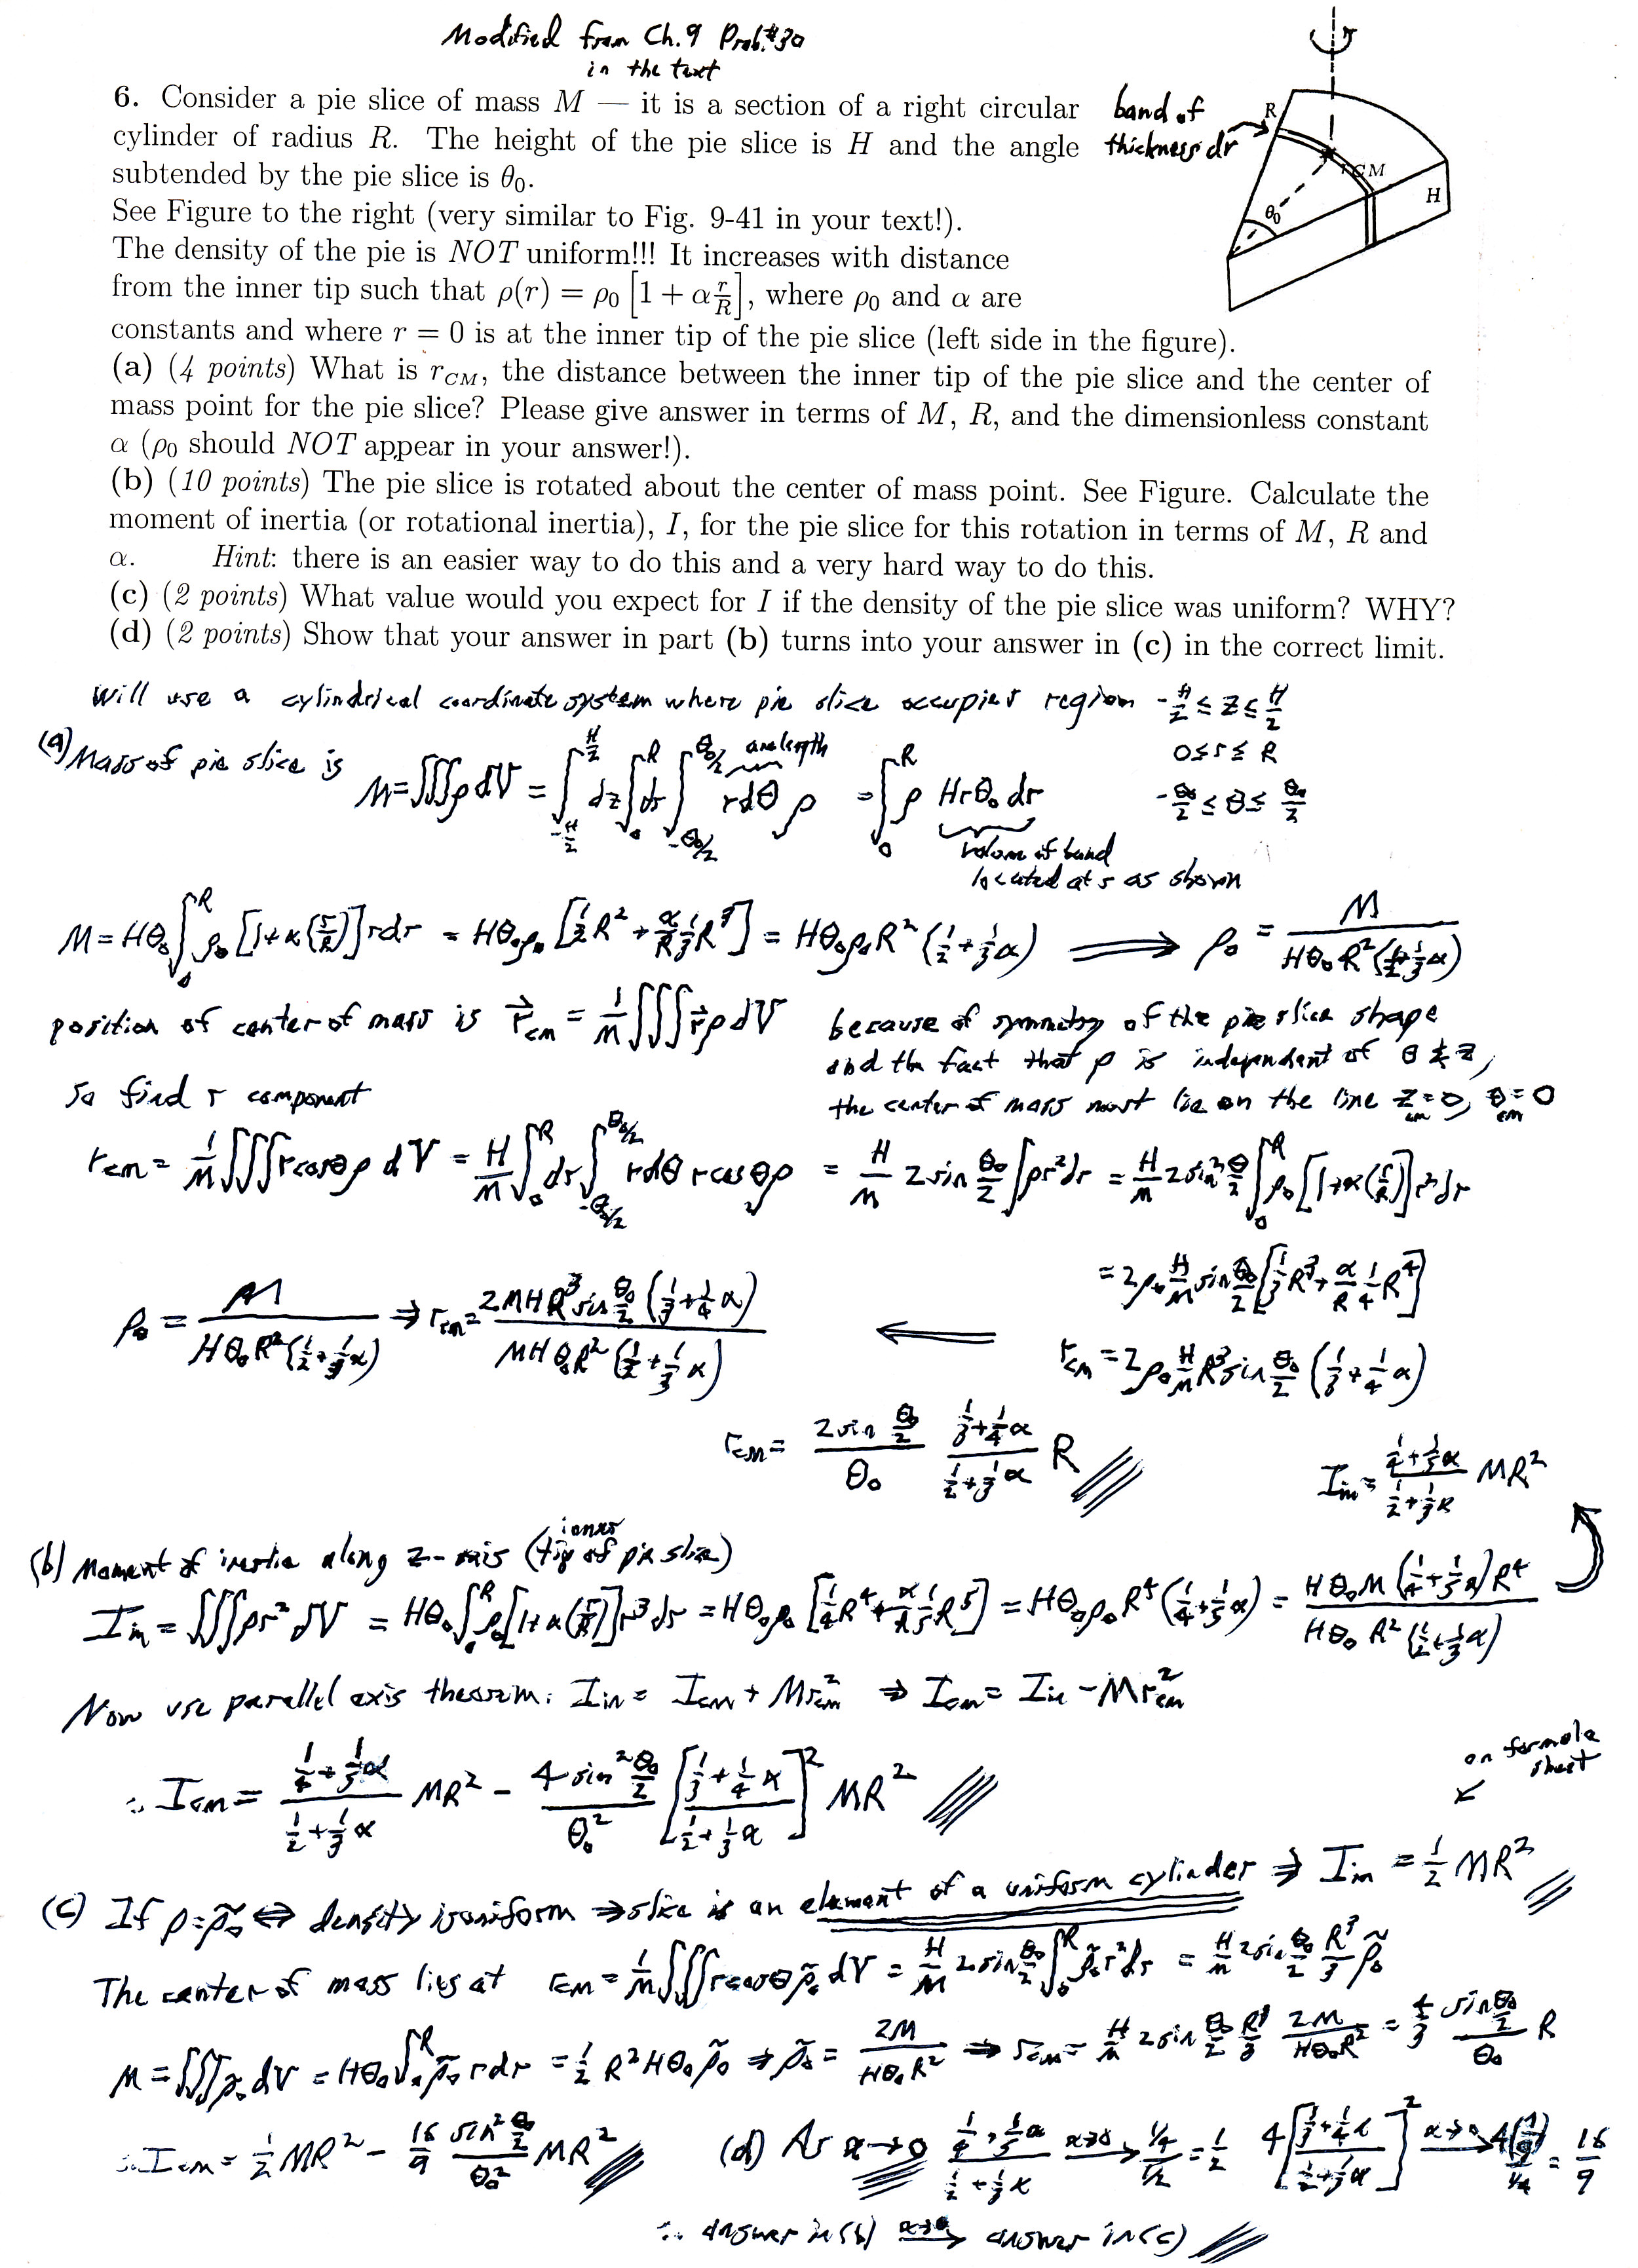 Modified from Ch.9 Prob.#30
in the text
6. Consider a pie slice of mass M — it is a section of a right circular
cylinder of radius R. The height of the pie slice is H and the angle
subtended by the pie slice is θ₀.
band of
thickness dr
R
CM
H
θ₀
See Figure to the right (very similar to Fig. 9-41 in your text!).
The density of the pie is NOT uniform!!! It increases with distance
from the inner tip such that ρ(r) = ρ₀ [1 + α r/R], where ρ₀ and α are
constants and where r = 0 is at the inner tip of the pie slice (left side in the figure).
(a) (4 points) What is r_CM, the distance between the inner tip of the pie slice and the center of
mass point for the pie slice? Please give answer in terms of M, R, and the dimensionless constant
α (ρ₀ should NOT appear in your answer!).
(b) (10 points) The pie slice is rotated about the center of mass point. See Figure. Calculate the
moment of inertia (or rotational inertia), I, for the pie slice for this rotation in terms of M, R and
α. Hint: there is an easier way to do this and a very hard way to do this.
(c) (2 points) What value would you expect for I if the density of the pie slice was uniform? WHY?
(d) (2 points) Show that your answer in part (b) turns into your answer in (c) in the correct limit.
Will use a cylindrical coordinate system where pie slice occupies region -H/2 ≤ z ≤ H/2
0 ≤ r ≤ R
-θ₀/2 ≤ θ ≤ θ₀/2
(a) Mass of pie slice is M = ∭ρdV = ∫_{-H/2}^{H/2} dz ∫_0^R dr ∫_{-θ₀/2}^{θ₀/2} rdθ ρ = ∫_0^R ρ Hrθ₀ dr
arc length
volume of band
located at r as shown
M = Hθ₀ ∫_0^R ρ₀ [1+α(r/R)] rdr = Hθ₀ρ₀ [1/2 R² + α/R 1/3 R³] = Hθ₀ρ₀R² (1/2 + 1/3 α) ⟹ ρ₀ = M / (Hθ₀R²(1/2 + 1/3 α))
position of center of mass is r⃗_cm = 1/M ∭ r⃗ρdV because of symmetry of the pie slice shape
and the fact that ρ is independent of θ & z,
the center of mass must lie on the line z_cm = 0, θ_cm = 0
so find r component
r_cm = 1/M ∭ r cosθ ρ dV = H/M ∫_0^R dr ∫_{-θ₀/2}^{θ₀/2} rdθ r cosθ ρ = H/M 2 sin θ₀/2 ∫ρr²dr = H/M 2 sin θ/2 ∫_0^R ρ₀ [1+α(r/R)] r²dr
= 2ρ₀ H/M sin θ₀/2 [1/3 R³ + α/R 1/4 R⁴]
r_cm = 2ρ₀ H/M R³ sin θ₀/2 (1/3 + 1/4 α)
ρ₀ = M / (Hθ₀R²(1/2 + 1/3 α)) ⇒ r_cm = 2MHR³ sin θ₀/2 (1/3 + 1/4 α) / (MHθ₀R² (1/2 + 1/3 α)) ⟸
r_cm = (2 sin θ₀/2)/θ₀ (1/3 + 1/4 α)/(1/2 + 1/3 α) R
I_in = (1/4 + 1/5 α)/(1/2 + 1/3 α) MR²
(b) Moment of inertia along z-axis (inner tip of pie slice)
I_in = ∭ρr²dV = Hθ₀ ∫_0^R ρ₀[1+α(r/R)]r³dr = Hθ₀ρ₀ [1/4 R⁴ + α/R 1/5 R⁵] = Hθ₀ρ₀R⁴ (1/4 + 1/5 α) = Hθ₀M (1/4 + 1/5 α)R⁴ / (Hθ₀R² (1/2 + 1/3 α))
Now use parallel axis theorem: I_in = I_cm + Mr_cm² ⇒ I_cm = I_in - Mr_cm²
∴ I_cm = (1/4 + 1/5 α)/(1/2 + 1/3 α) MR² - (4 sin² θ₀/2)/θ₀² [(1/3 + 1/4 α)/(1/2 + 1/3 α)]² MR²
on formula
sheet
(c) If ρ = ρ̃₀ ⇔ density is uniform ⇒ slice is an element of a uniform cylinder ⇒ I_in = 1/2 MR²
The center of mass lies at r_cm = 1/M ∭ r cosθ ρ̃₀ dV = H/M 2 sin θ₀/2 ∫_0^R ρ̃₀r²dr = H/M 2 sin θ₀/2 R³/3 ρ̃₀
M = ∭ρ̃₀dV = Hθ₀ ∫_0^R ρ̃₀ rdr = 1/2 R²Hθ₀ρ̃₀ ⇒ ρ̃₀ = 2M/(Hθ₀R²) ⇒ r_cm = H/M 2 sin θ₀/2 R³/3 2M/(Hθ₀R²) = 4/3 (sin θ₀/2)/θ₀ R
∴ I_cm = 1/2 MR² - 16/9 (sin² θ₀/2)/θ₀² MR²
(d) As α→0 (1/4 + 1/5 α)/(1/2 + 1/3 α) α→0→ (1/4)/(1/2) = 1/2 4[(1/3 + 1/4 α)/(1/2 + 1/3 α)]² α→0→ 4(1/9)/(1/4) = 16/9
∴ answer in (b) α→0→ answer in (c)